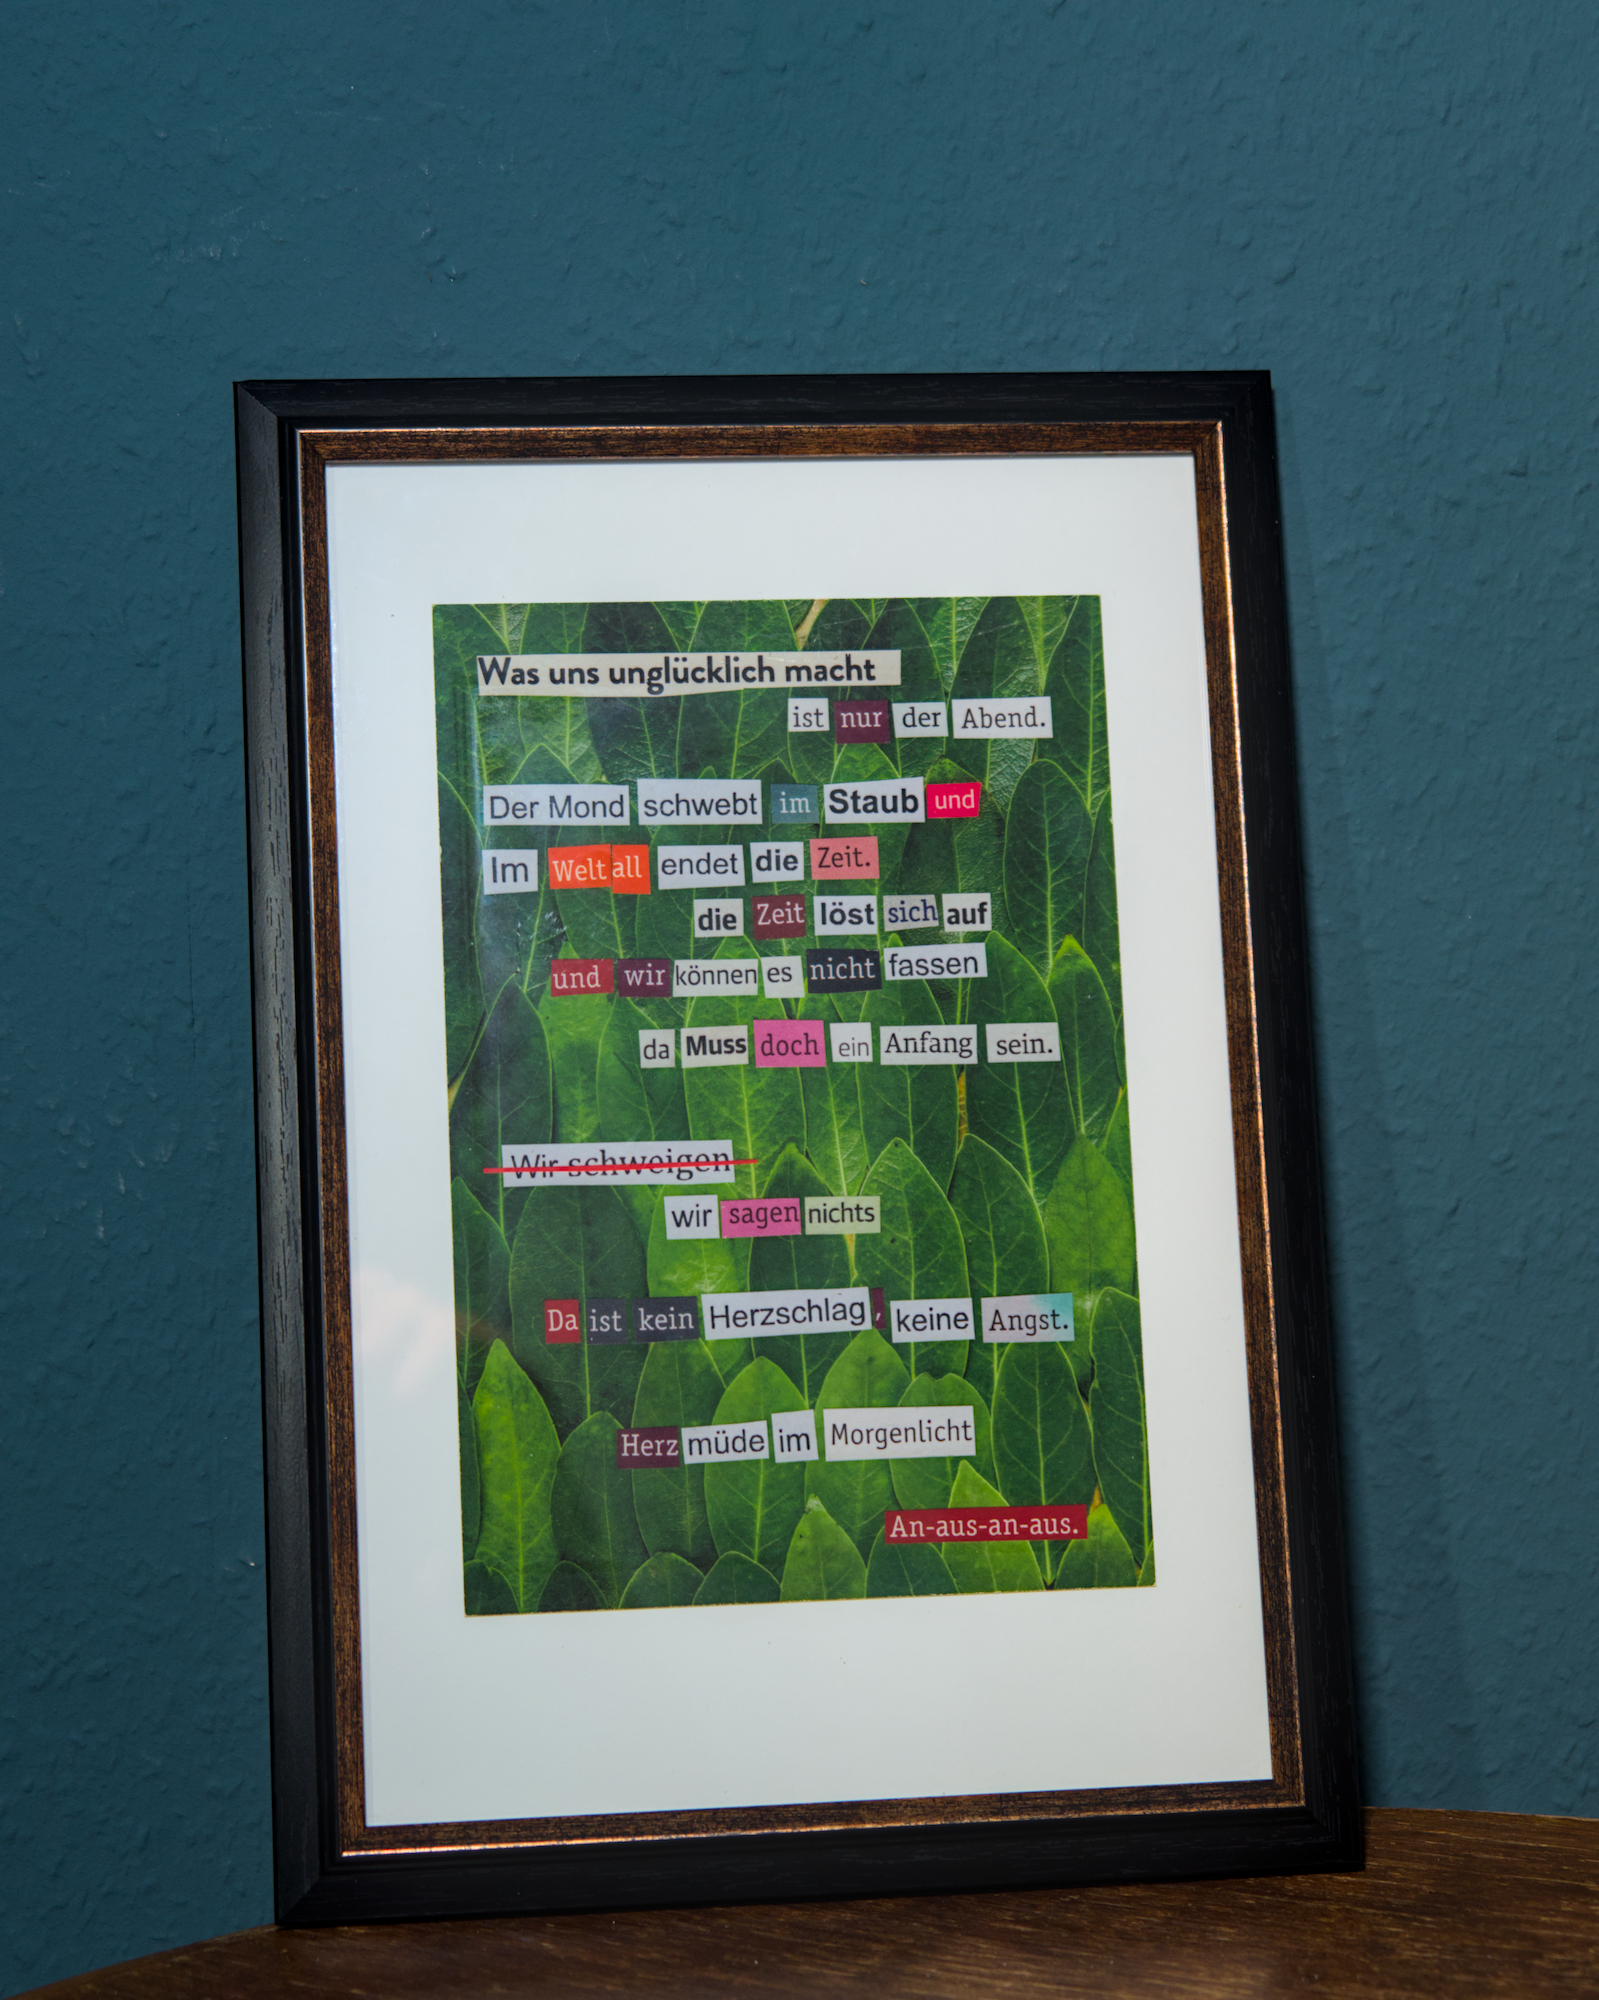 Was uns unglücklich macht
ist nur der Abend.
Der Mond schwebt im Staub und
Im Weltall endet die Zeit.
die Zeit löst sich auf
und wir können es nicht fassen
da Muss doch ein Anfang sein.
Wir schweigen
wir sagen nichts
Da ist kein Herzschlag, keine Angst.
Herz müde im Morgenlicht
An-aus-an-aus.